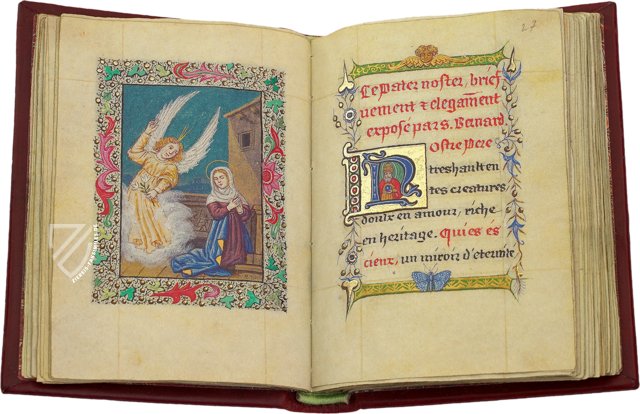 27
Le Pater noster, brief
uement & elegament
exposé par S. Bernard
Nostre Pere
treshault en
tes creatures
doulx en amour, riche
en heritage. Qui es és
cieux, un miroir d'eternité